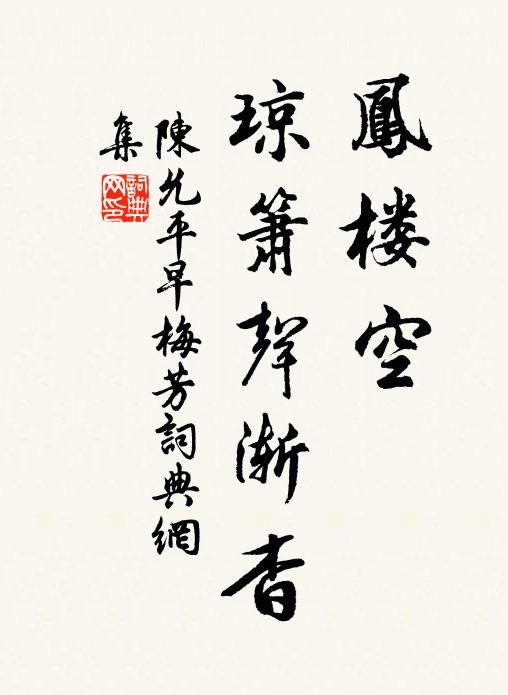 鳳楼空
琼簫聲渐杳
陳允平早梅芳詞典網
集
詞典
网印